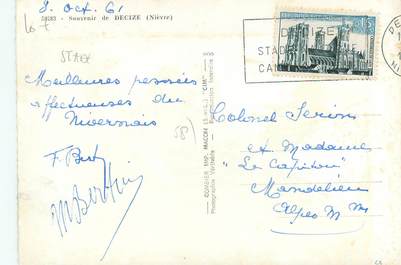 8. Oct. 61
58683 - Souvenir de DECIZE (Nièvre)
Meilleures pensées
affectueuses du
Nivernais
F. Bert
M Berthier
COMBIER IMP. MACON (S.-et-L.) "CIM"
Photographie Véritable
DECIZE
STADE
CAN
DE
Colonel Serion
et Madame
"Le Capitou"
Mandelieu
Alpes M mes